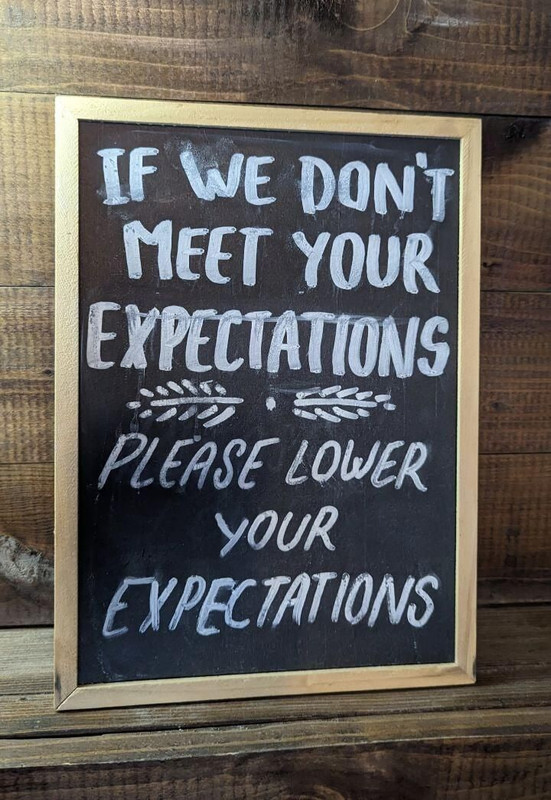 IF WE DON'T
MEET YOUR
EXPECTATIONS
PLEASE LOWER
YOUR
EXPECTATIONS